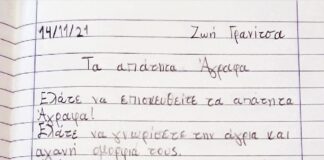 14/11/21 Ζωή Γρανίτσα
Τα απάτητα Άγραφα
Ελάτε να επισκευθείτε τα απάτητα
Άγραφα!
Ελάτε να γνωρίσετε την άγρια και
αχανή ομορφιά τους.